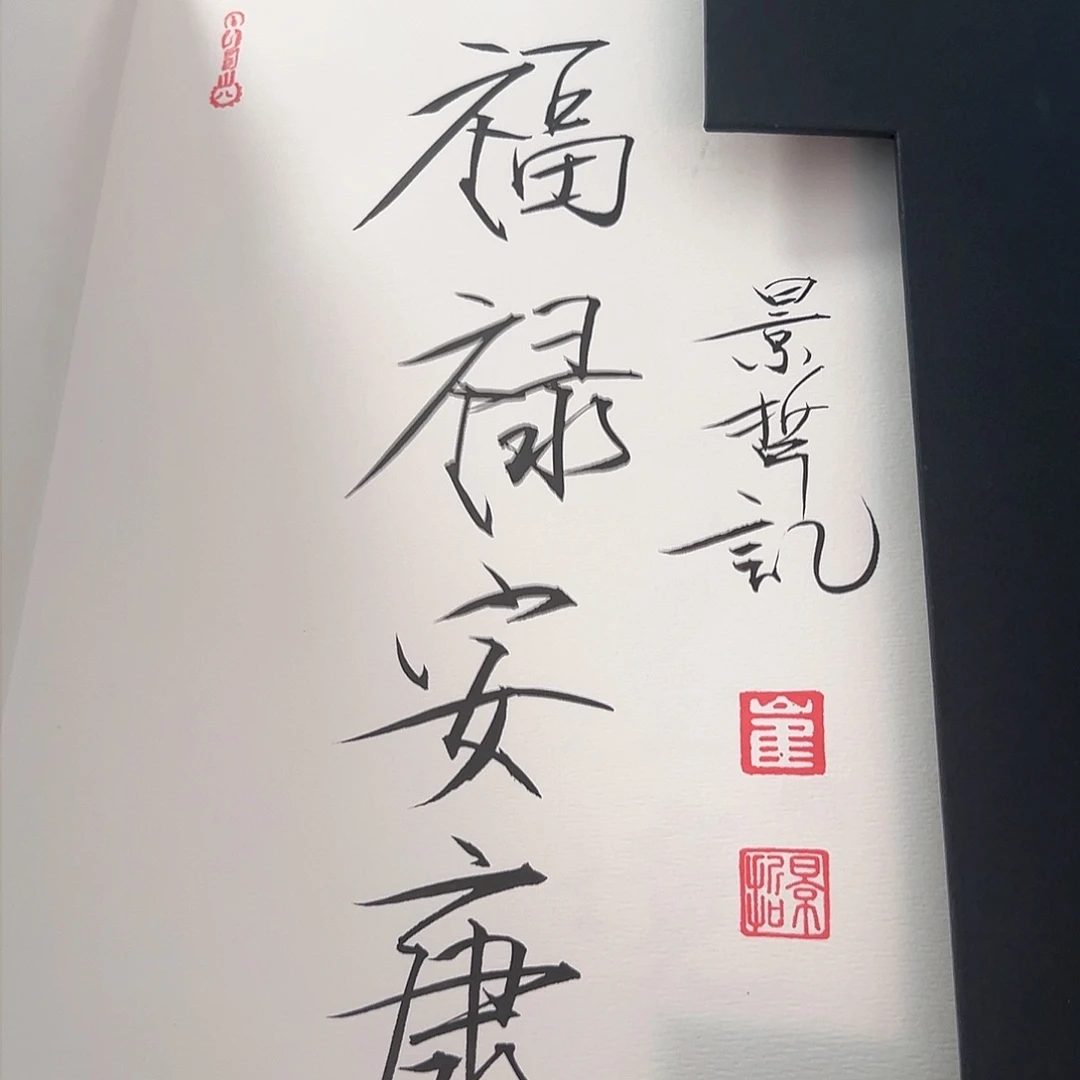 福禄安康
景哲記
崔
景哲